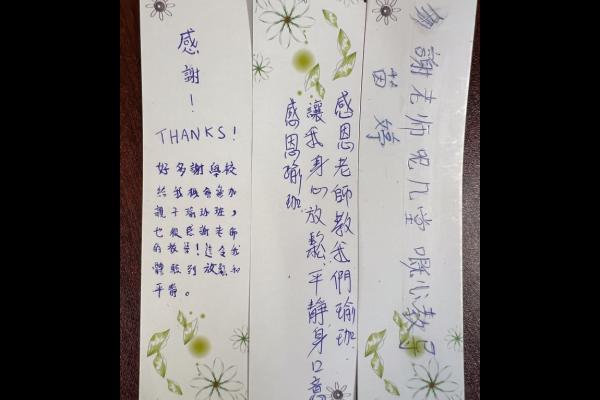 感謝！
THANKS!
好多謝學校
給我機會參加
親子瑜珈班，
也很感謝老師
的教導！這令我
體驗到放鬆和
平靜。
感恩老師教我們瑜珈
讓我身心放鬆、平靜身口意
感恩瑜珈
多謝老師呢几堂嘅心教导
茵婷